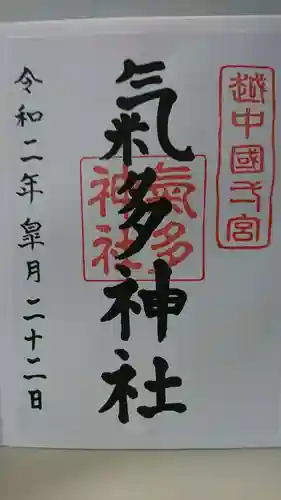 越中國弌宮
氣多神社
氣多神社
令和二年皐月二十二日